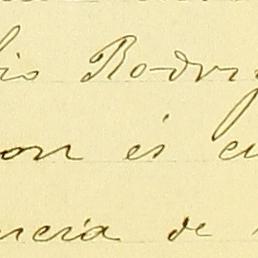 lio Rodrig
on és cu
ncia de